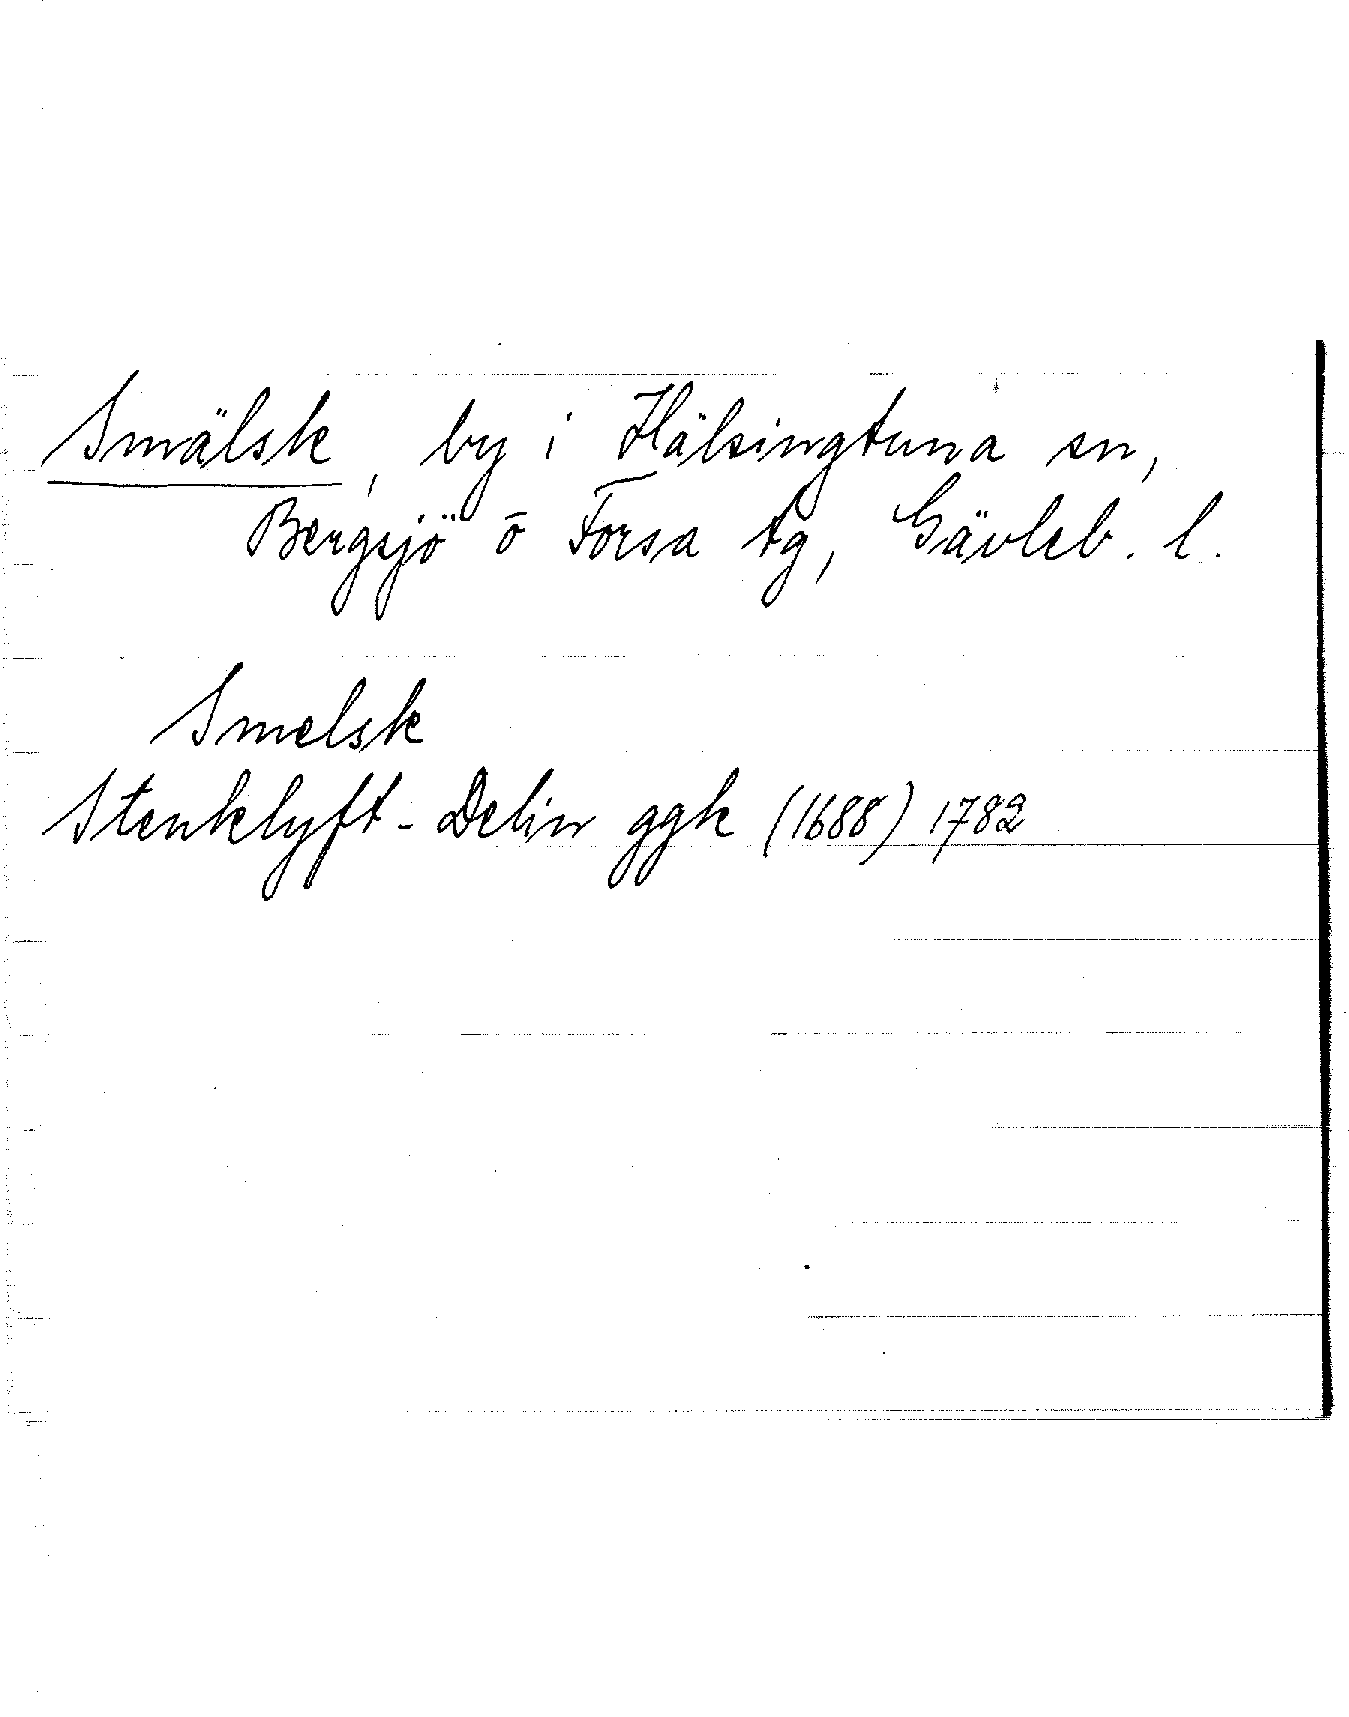 Smälsk, by i Hälsingtuna sn,
Bergsjö o Forsa tg, Gävleb. l.
Smelsk
Stenklyft - Delin ggk (1688) 1782